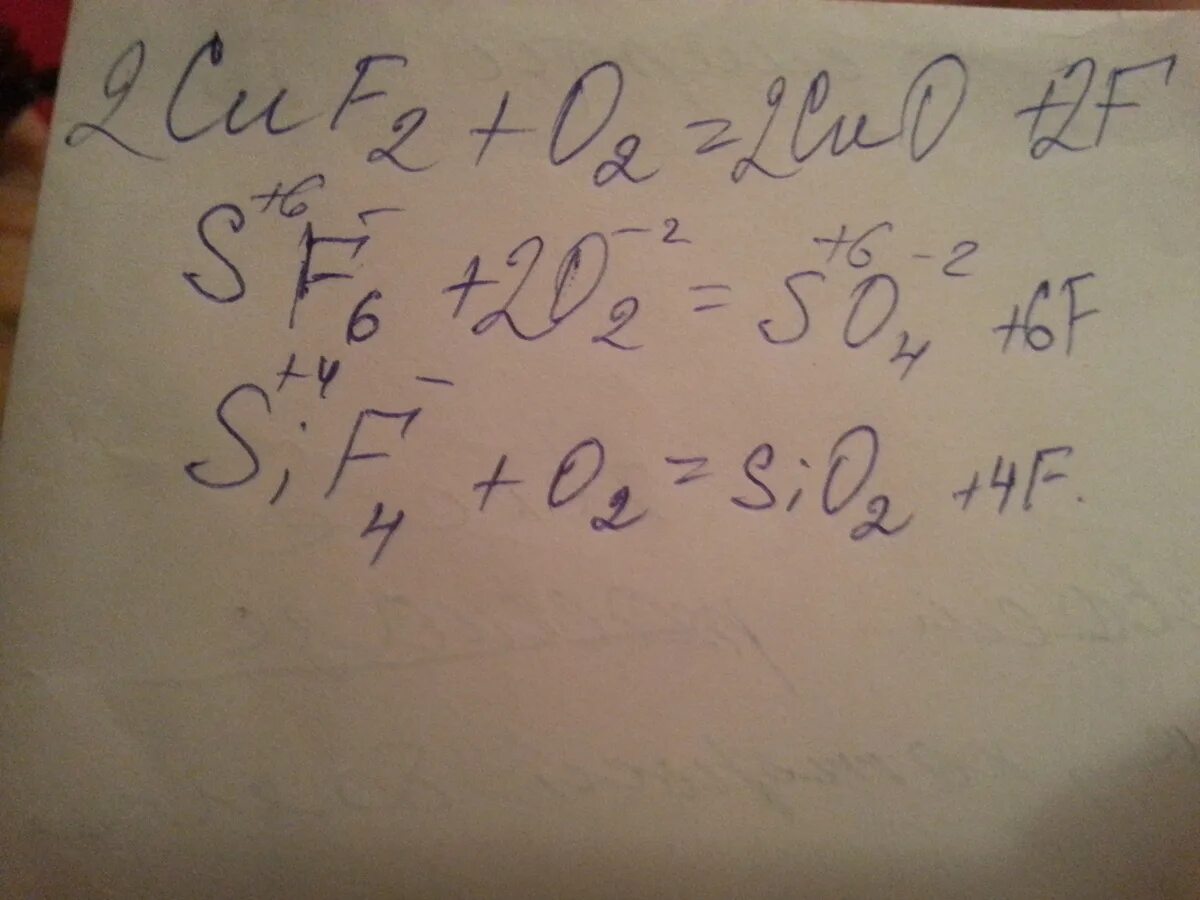 2CuF₂ + O₂ = 2CuO + 2F
S⁺⁶F⁻₆ + 2O₂⁻² = S⁺⁶O₄⁻² + 6F
Si⁺⁴F⁻₄ + O₂ = SiO₂ + 4F.